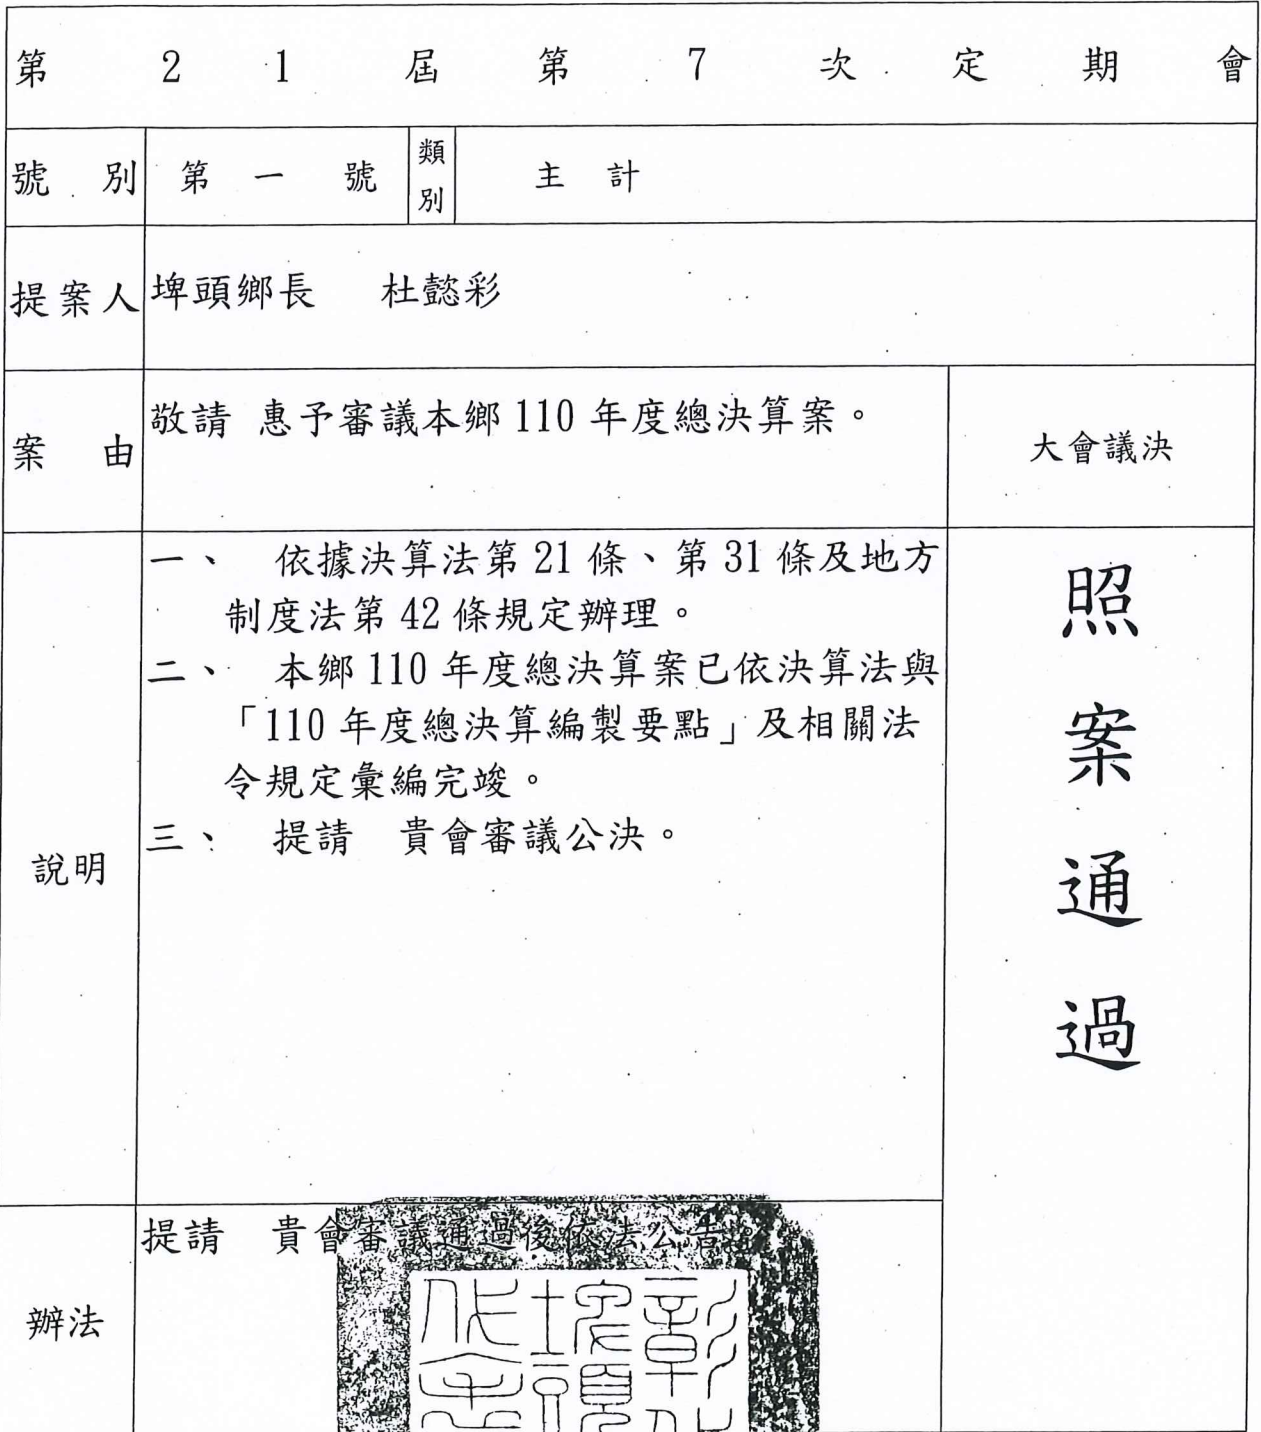 第21屆第7次定期會
號別 第一號 類別 主計
提案人 埤頭鄉長 杜懿彩
案由 敬請 惠予審議本鄉110年度總決算案。 大會議決
說明
一、 依據決算法第21條、第31條及地方
制度法第42條規定辦理。
二、 本鄉110年度總決算案已依決算法與
「110年度總決算編製要點」及相關法
令規定彙編完竣。
三、 提請 貴會審議公決。
照案通過
辦法
提請 貴會審議通過後依法公告。
彰化
埤頭
代表